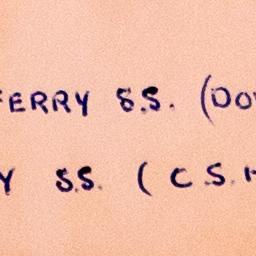 FERRY S.S. (DOV
Y S.S. ( C.S.H